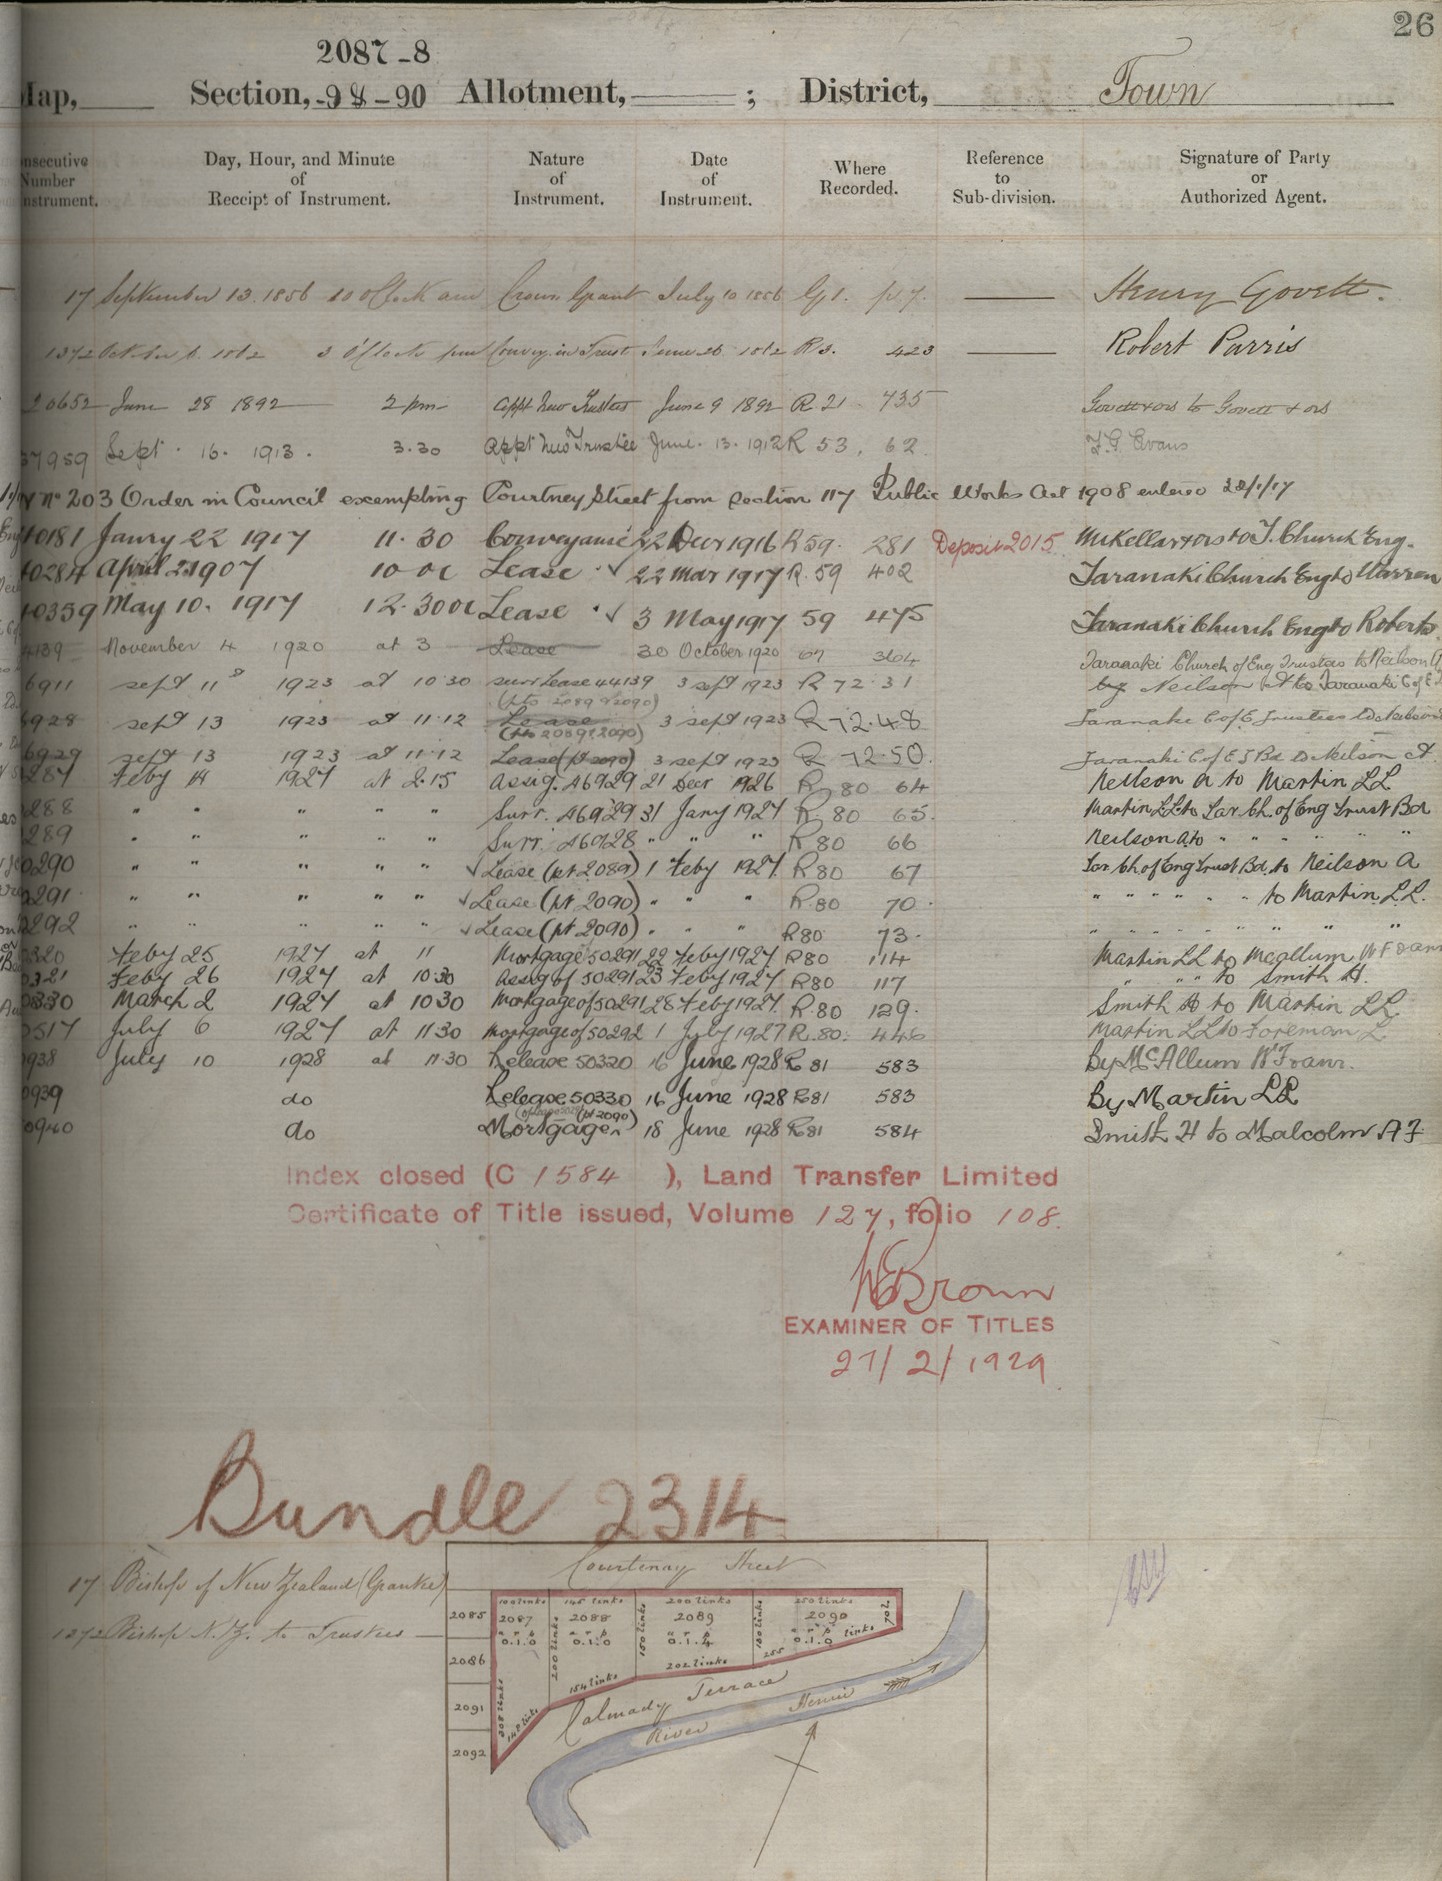 26
2087-8
Map, Section, -98-90 Allotment, ; District, Town
Consecutive Number Instrument. Day, Hour, and Minute of Receipt of Instrument. Nature of Instrument. Date of Instrument. Where Recorded. Reference to Sub-division. Signature of Party or Authorized Agent.
17 September 13. 1856 10 oClock am Crown Grant July 10 1856 G1. p 7. Henry Govett.
1372 October 6. 1862 3 O'Clock pm Convey. in Trust June 26 1862 R 3. 423 Robert Parris
20652 June 28 1892 2 pm Appt New Trustees June 9 1892 R 21 735 Govett & ors to Govett & ors
37959 Sept. 16. 1913. 3.30 Appt New Trustee June. 13. 1912 R 53. 62 F.G. Evans
No 203 Order in Council exempting Courtney Street from section 117 Public Works Act 1908 entered 22/1/17
40181 Janry 22 1917 11.30 Conveyance 22 Decr 1916 R 59. 281 Deposit 2015 McKellar & ors to T. Church Eng.
40284 April 2 1907 10-0c Lease 22 Mar 1917 R. 59 402 Taranaki Church Eng to Warren
40359 May 10. 1917 12.30 oc Lease 3 May 1917 59 475 Taranaki Church Eng to Roberts
4139 November 4 1920 at 3 Lease 30 October 1920 67 364 Taranaki Church of Eng Trustees to Neilson A
6911 sept 11 1923 at 10.30 surr Lease 44139 3 sept 1923 R 72.31 by Neilson A to Taranaki C of E
(pto 2089 & 2090)
6928 sept 13 1923 at 11.12 Lease 3 sept 1923 R 72.48 Taranaki C of E Trustees to Neilson
(pto 2089 & 2090)
6929 sept 13 1923 at 11.12 Lease (pt 2090) 3 sept 1923 R 72.50. Taranaki C of E T Bd to Neilson A
287 Feby 14 1927 at 2.15 Assig. 46929 21 Decr 1926 R 80 64 Neilson A to Martin LL
288 " " " " " Surr. 46929 31 Jany 1927 R. 80 65. Martin LL to Tar. Ch. of Eng Trust Bd
289 " " " " " Surr. 46928 " " " R 80 66 Neilson A to " " " " "
0290 " " " " " Lease (pt 2089) 1 Feby 1927 R 80 67 Tar. Ch of Eng Trust Bd. to Neilson A
0291 " " " " " Lease (pt 2090) " " " R. 80 70. " " " " " " to Martin L.L.
0292 " " " " " Lease (pt 2090) " " " R 80 73. " " " " " " " " "
0320 Feby 25 1927 at 11 Mortgage 50291 22 Feby 1927 R 80 114 Martin LL to McAllum W F
0321 Feby 26 1927 at 10.30 Assig of 50291 23 Feby 1927 R 80 117 " " to Smith H.
0330 March 2 1927 at 10.30 Mortgage of 50291 28 Feby 1927. R. 80 129. Smith H to Martin LL
0517 July 6 1927 at 11.30 Mortgage of 50292 1 July 1927 R. 80. 446 Martin LL to Foreman L
0938 July 10 1928 at 11.30 Release 50320 16 June 1928 R 81 583 By McAllum W
0939 do Release 50330 16 June 1928 R 81 583 By Martin LL
0940 do Mortgage (of Lease 50291) (pt 2090) 18 June 1928 R 81 584 Smith H to Malcolm A F
Index closed (C 1584 ), Land Transfer Limited
Certificate of Title issued, Volume 127, folio 108.
Brown
EXAMINER OF TITLES
27/2/1929
Bundle 2314
17 Bishop of New Zealand (Grantee)
1372 Bishop N.Z. to Trustees
Courtenay Street
100 links 145 links 200 links 250 links
2085 2087 2088 2089 2090 70 L
a r p a r p a r p a r p
0.1.0 0.1.0 0.1.4 0.1.0
200 links 150 links
2086 154 links 202 links 255 links
2091 308 links 148 links Calmady Terrace
2092 River Henui